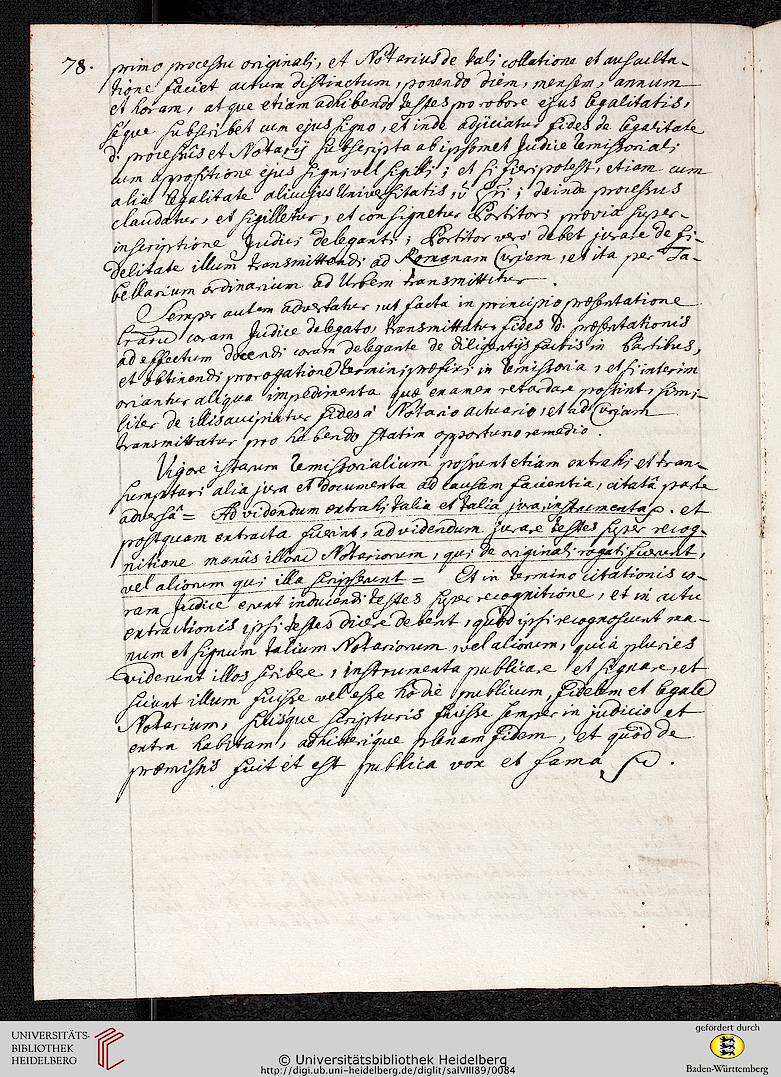 78. primo processu originali, et Notarius de tali collatione et ausculta-
tione faciet actum distinctum, ponendo diem, mensem, annum
et horam, atque etiam adhibendo testes pro robore ejus legalitatis,
seque subscribet cum ejus signo, et inde adjiciatur fides de legalitate
d. processus et Notarij subscripta ab ipsomet Judice remissoriali
cum appositione ejus signi, vel sigilli; et si fieri potest, etiam cum
alia legalitate alicujus Universitatis, ; deinde processus
claudatur, et sigilletur, et consignetur Portitori prævia super-
inscriptione Judici deleganti; Portitor verò debet jurare de fi-
delitate illum transmittendi ad Romanam Curiam, et ita per Ta-
bellarium ordinarium ad Urbem transmittitur.
Semper autem advertatur, ut facta in principio præsentatione
coram Judice delegato, transmittatur fides d. præsentationis
ad effectum docendi coram delegante de diligentijs factis in Partibus,
et obtinendi prorogationē termini præfixi in remissoria, et si interim
oriantur aliqua impedimenta quæ examen retardare possint, simi-
liter de illis accipiatur fides à Notario actuario, et ad Curiam
transmittatur pro habendo statim opportuno remedio.
Vigore istarum remissorialium possunt etiam extrahi et tran-
sumptari alia jura et documenta ad causam facientia, citatâ parte
adversâ = Ad videndum extrahi talia et talia jura, instrumenta p. et
postquam extracta fuerint, ad videndum jurare testes super recog-
nitione manûs illorū Notariorum, qui de originali rogati fuerunt,
vel aliorum qui illa scripserunt = Et in termino citationis co-
ram Judice erunt inducendi testes super recognitione, et in actu
extractionis ipsi testes dicere debent, quòd ipsi recognoscunt ma-
num et signum talium Notariorum, vel aliorum, quià pluries
viderunt illos scribere, instrumenta publicare et signare, et
sciunt illum fuisse vel esse hodie publicum, fidelem et legalē
Notarium, suisque scripturis fuisse semper in judicio et
extra habitam, adhiberique plenam fidem, et quòd de
præmissis fuit et est publica vox et fama .
UNIVERSITÄTS-
BIBLIOTHEK
HEIDELBERG
© Universitätsbibliothek Heidelberg
http://digi.ub.uni-heidelberg.de/diglit/salVIII89/0084
gefördert durch
Baden-Württemberg